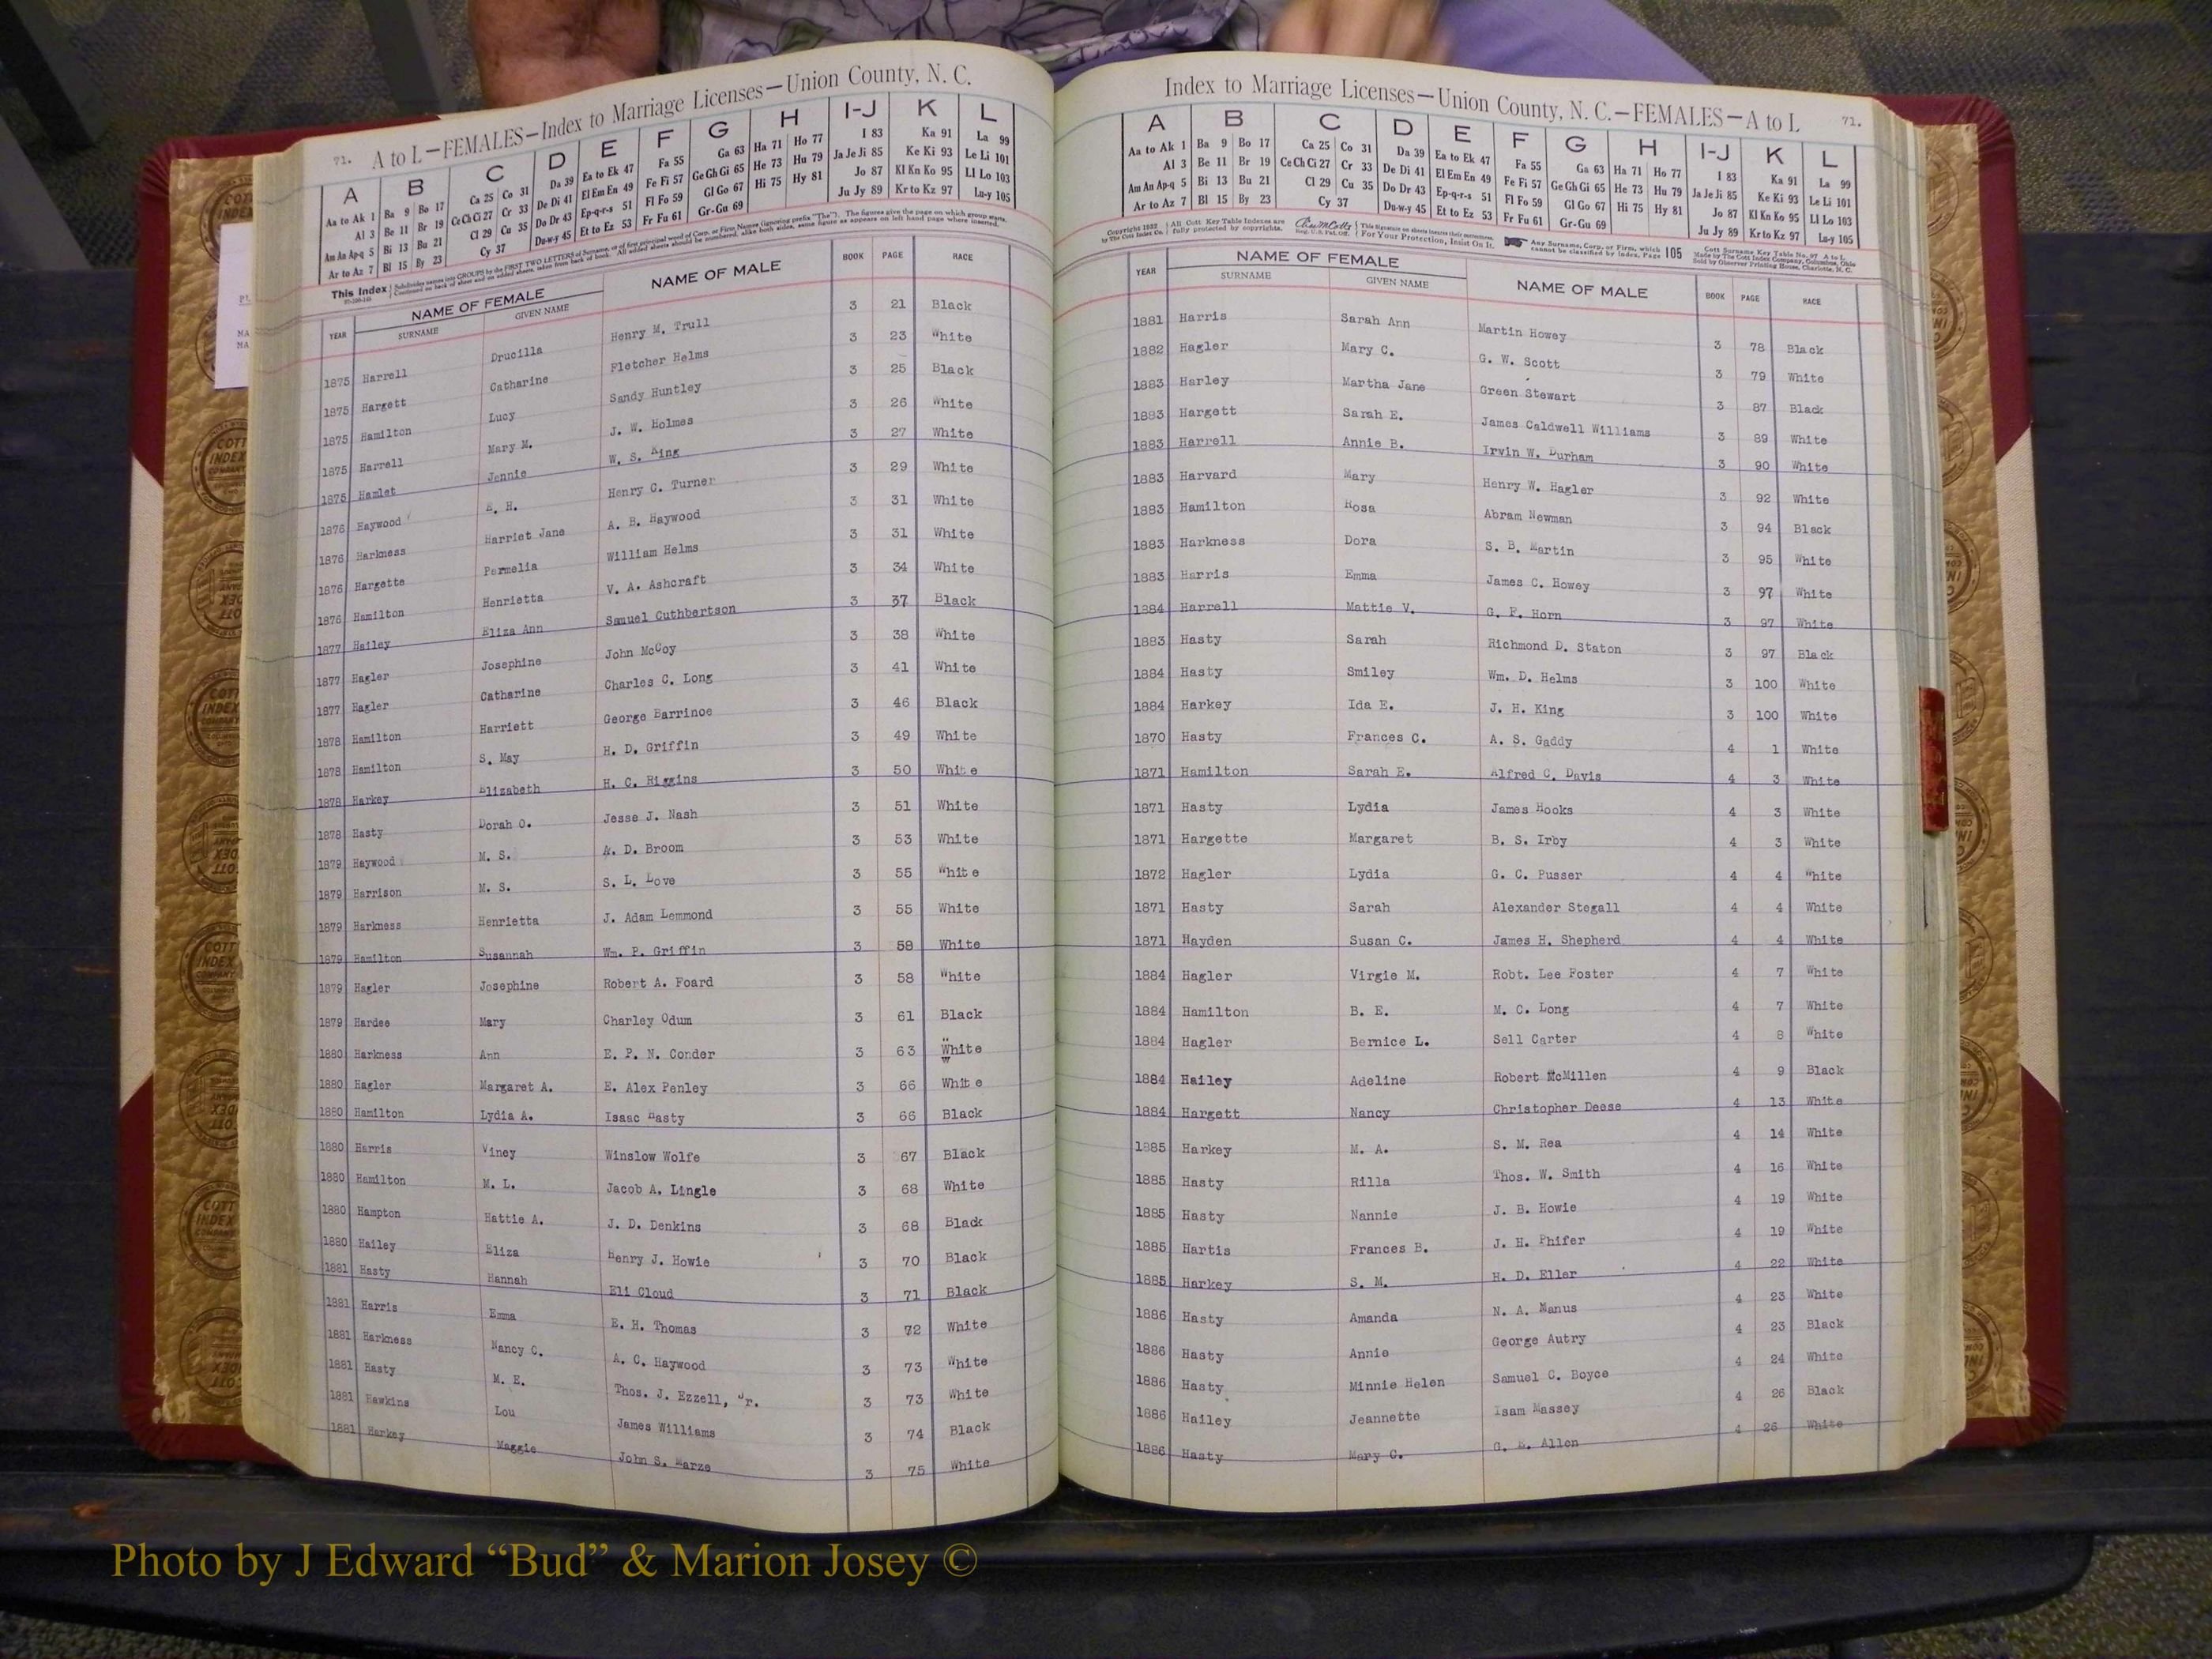 71. A to L—FEMALES—Index to Marriage Licenses—Union County, N. C.
A B C D E F G H I-J K L
Aa to Ak 1 Ba 9 Bo 17 Ca 25 Co 31 Da 39 Ea to Ek 47 Fa 55 Ga 63 Ha 71 Ho 77 I 83 Ka 91 La 99
Al 3 Be 11 Br 19 Ce Ch Ci 27 Cr 33 De Di 41 El Em En 49 Fe Fi 57 Ge Gh Gi 65 He 73 Hu 79 Ja Je Ji 85 Ke Ki 93 Le Li 101
Am An Ap-q 5 Bi 13 Bu 21 Cl 29 Cu 35 Do Dr 43 Ep-q-r-s 51 Fl Fo 59 Gl Go 67 Hi 75 Hy 81 Jo 87 Kl Kn Ko 95 Ll Lo 103
Ar to Az 7 Bl 15 By 23 Cy 37 Du-w-y 45 Et to Ez 53 Fr Fu 61 Gr-Gu 69 Ju Jy 89 Kr to Kz 97 Lu-y 105
This Index Subdivides names into GROUPS by the FIRST TWO LETTERS of Surname, or of first principal word of Corp. or Firm Names (ignoring prefix "The"). The figures give the page on which group starts.
Continued on back of sheet and on added sheets, taken from back of book. All added sheets should be numbered, alike both sides, same figure as appears on left hand page where inserted.
YEAR NAME OF FEMALE NAME OF MALE BOOK PAGE RACE
SURNAME GIVEN NAME
1875 Harrell Drucilla Henry M. Trull 3 21 Black
1875 Hargett Catharine Fletcher Helms 3 23 White
1875 Hamilton Lucy Sandy Huntley 3 25 Black
1875 Harrell Mary M. J. W. Holmes 3 26 White
1875 Hamlet Jennie W. S. King 3 27 White
1876 Haywood E. H. Henry C. Turner 3 29 White
1876 Harkness Harriet Jane A. B. Haywood 3 31 White
1876 Hargette Permelia William Helms 3 31 White
1876 Hamilton Henrietta V. A. Ashcraft 3 34 White
1877 Hailey Eliza Ann Samuel Cuthbertson 3 37 Black
1877 Hagler Josephine John McCoy 3 38 White
1877 Hagler Catharine Charles C. Long 3 41 White
1878 Hamilton Harriett George Barrinoe 3 46 Black
1878 Hamilton S. May H. D. Griffin 3 49 White
1878 Harkey Elizabeth H. C. Riggins 3 50 White
1878 Hasty Dorah O. Jesse J. Nash 3 51 White
1879 Haywood M. S. A. D. Broom 3 53 White
1879 Harrison M. S. S. L. Love 3 55 White
1879 Harkness Henrietta J. Adam Lemmond 3 55 White
1879 Hamilton Susannah Wm. P. Griffin 3 58 White
1879 Hagler Josephine Robert A. Foard 3 58 White
1879 Hardee Mary Charley Odum 3 61 Black
1880 Harkness Ann E. P. N. Conder 3 63 White
1880 Hagler Margaret A. E. Alex Penley 3 66 White
1880 Hamilton Lydia A. Isaac Hasty 3 66 Black
1880 Harris Viney Winslow Wolfe 3 67 Black
1880 Hamilton M. L. Jacob A. Lingle 3 68 White
1880 Hampton Hattie A. J. D. Denkins 3 68 Black
1880 Hailey Eliza Henry J. Howie 3 70 Black
1881 Hasty Hannah Eli Cloud 3 71 Black
1881 Harris Emma E. H. Thomas 3 72 White
1881 Harkness Nancy C. A. C. Haywood 3 73 White
1881 Hasty M. E. Thos. J. Ezzell, Jr. 3 73 White
1881 Hawkins Lou James Williams 3 74 Black
1881 Harkey Maggie John S. Marze 3 75 White
Index to Marriage Licenses—Union County, N. C.—FEMALES—A to L 71.
A B C D E F G H I-J K L
Aa to Ak 1 Ba 9 Bo 17 Ca 25 Co 31 Da 39 Ea to Ek 47 Fa 55 Ga 63 Ha 71 Ho 77 I 83 Ka 91 La 99
Al 3 Be 11 Br 19 Ce Ch Ci 27 Cr 33 De Di 41 El Em En 49 Fe Fi 57 Ge Gh Gi 65 He 73 Hu 79 Ja Je Ji 85 Ke Ki 93 Le Li 101
Am An Ap-q 5 Bi 13 Bu 21 Cl 29 Cu 35 Do Dr 43 Ep-q-r-s 51 Fl Fo 59 Gl Go 67 Hi 75 Hy 81 Jo 87 Kl Kn Ko 95 Ll Lo 103
Ar to Az 7 Bl 15 By 23 Cy 37 Du-w-y 45 Et to Ez 53 Fr Fu 61 Gr-Gu 69 Ju Jy 89 Kr to Kz 97 Lu-y 105
Copyright 1932 by The Cott Index Co. All Cott Key Table Indexes are fully protected by copyrights. For Your Protection, Insist On It. Any Surname, Corp. or Firm, which cannot be classified by Index, Page 105 Cott Surname Key Table No. 97 A to L Made by The Cott Index Company, Columbus, Ohio Sold by Observer Printing House, Charlotte, N. C.
YEAR NAME OF FEMALE NAME OF MALE BOOK PAGE RACE
SURNAME GIVEN NAME
1881 Harris Sarah Ann Martin Howey 3 78 Black
1882 Hagler Mary C. G. W. Scott 3 79 White
1883 Harley Martha Jane Green Stewart 3 87 Black
1883 Hargett Sarah E. James Caldwell Williams 3 89 White
1883 Harrell Annie B. Irvin W. Durham 3 90 White
1883 Harvard Mary Henry W. Hagler 3 92 White
1883 Hamilton Rosa Abram Newman 3 94 Black
1883 Harkness Dora S. B. Martin 3 95 White
1883 Harris Emma James C. Howey 3 97 White
1884 Harrell Mattie V. G. F. Horn 3 97 White
1883 Hasty Sarah Richmond D. Staton 3 97 Black
1884 Hasty Smiley Wm. D. Helms 3 100 White
1884 Harkey Ida E. J. H. King 3 100 White
1870 Hasty Frances C. A. S. Gaddy 4 1 White
1871 Hamilton Sarah E. Alfred C. Davis 4 3 White
1871 Hasty Lydia James Hooks 4 3 White
1871 Hargette Margaret B. S. Irby 4 3 White
1872 Hagler Lydia G. C. Pusser 4 4 White
1871 Hasty Sarah Alexander Stegall 4 4 White
1871 Hayden Susan C. James H. Shepherd 4 4 White
1884 Hagler Virgie M. Robt. Lee Foster 4 7 White
1884 Hamilton B. E. M. C. Long 4 7 White
1884 Hagler Bernice L. Sell Carter 4 8 White
1884 Hailey Adeline Robert McMillen 4 9 Black
1884 Hargett Nancy Christopher Deese 4 13 White
1885 Harkey M. A. S. M. Rea 4 14 White
1885 Hasty Rilla Thos. W. Smith 4 16 White
1885 Hasty Nannie J. B. Howie 4 19 White
1885 Hartis Frances B. J. H. Phifer 4 19 White
1885 Harkey S. M. H. D. Eller 4 22 White
1886 Hasty Amanda N. A. Manus 4 23 White
1886 Hasty Annie George Autry 4 23 Black
1886 Hasty Minnie Helen Samuel C. Boyce 4 24 White
1886 Hailey Jeannette Isam Massey 4 26 Black
1886 Hasty Mary C. G. E. Allen 4 26 White
Photo by J Edward “Bud” & Marion Josey ©